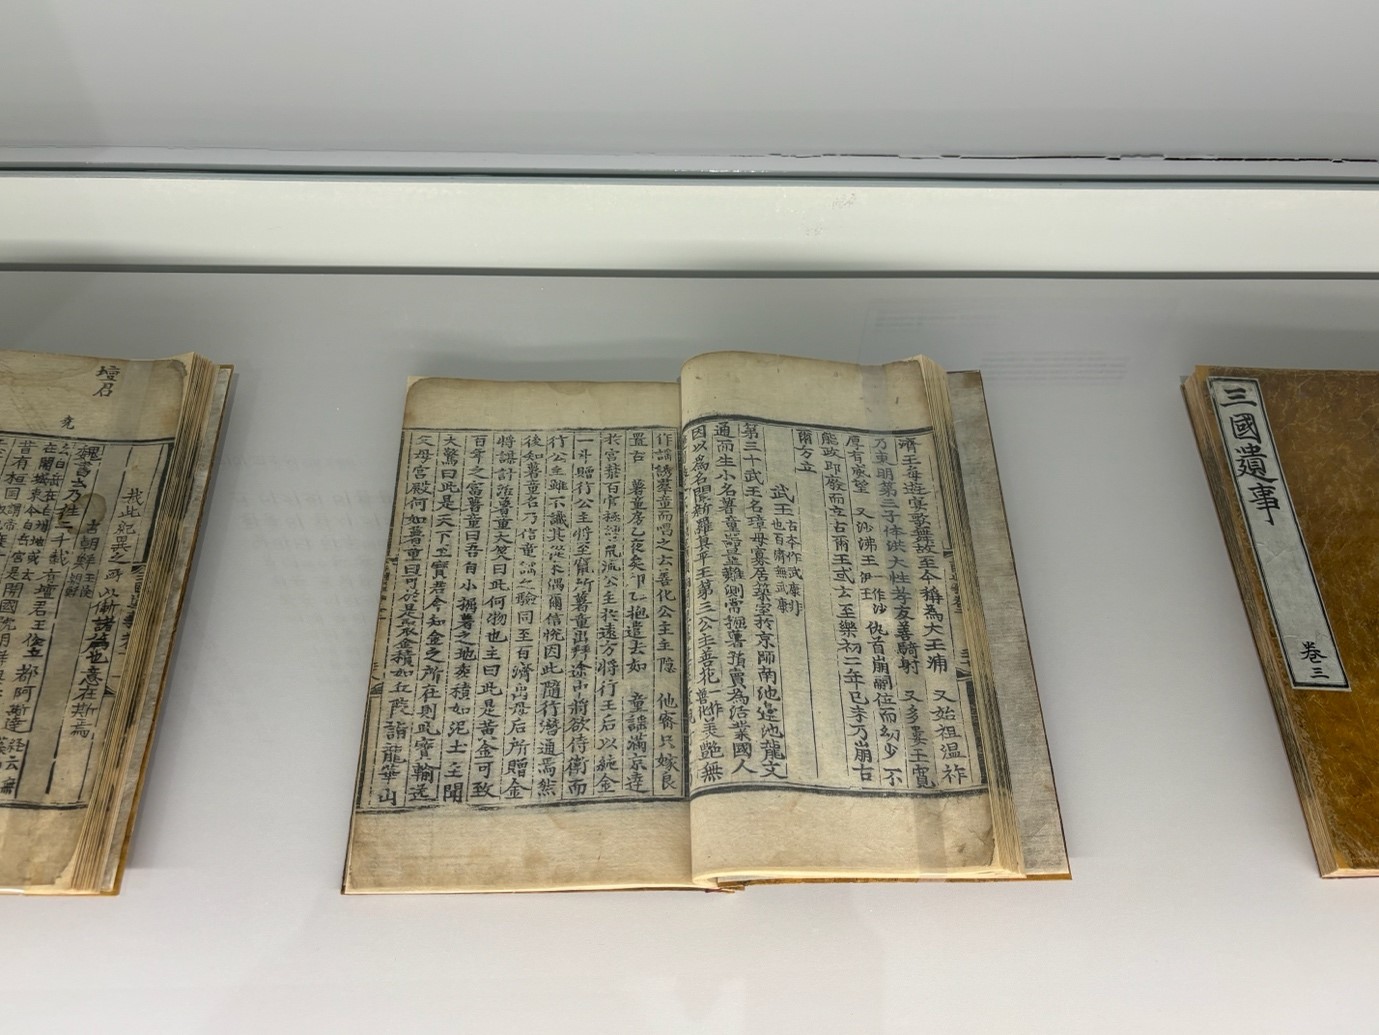 三國遺事
卷三
濟王每遊宴歌舞故至今稱為大王浦 又始祖溫祚
乃東明第三子体洪大性孝友善騎射 又多婁王寬
厚有威望 又沙沸王 一作沙伊王 仇首崩嗣位而幼少不
能政即廢而立古爾王或云至樂初二年己未乃崩古
爾方立
武王 古本作武康非也百濟無武康
第三十武王名璋母寡居築室於京師南池邊池龍交
通而生小名薯童器量難測常掘薯蕷賣為活業國人
因以為名聞新羅真平王第三公主善花 一作善化 美艶無
作謠誘羣童而唱之云善化公主主隱 他密只嫁良
置古 薯童房乙夜矣夘乙抱遣去如 童謠滿京達
於宮禁百官極諫竄流公主於遠方將行王后以純金
一斗贈行公主將至竄所薯童出拜途中將欲侍衛而
行公主雖不識其從來偶爾信悅因此隨行潛通焉然
後知薯童名乃信童謠之驗同至百濟出母后所贈金
將謀計活薯童大笑曰此何物也主曰此是黃金可致
百年之富薯童曰吾自小掘薯之地委積如泥土主聞
大驚曰此是天下至寶君今知金之所在則此寶輸送
父母宮殿何如薯童曰可於是聚金積如丘陵詣龍華山
我此紀異之所以慚諸篇也意在斯焉
古朝鮮 王儉朝鮮
魏書云乃往二千載有壇君王儉立都阿斯達 經云無
云白岳在白州地或云
在開城東今白岳宮是 開國